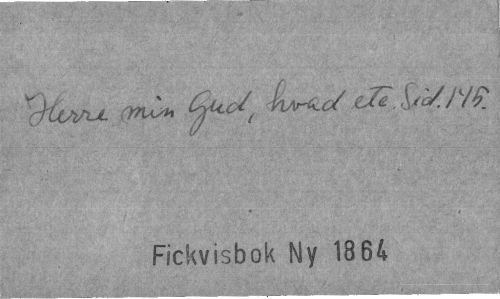 Herre min Gud, hvad etc. Sid. 145.
Fickvisbok Ny 1864